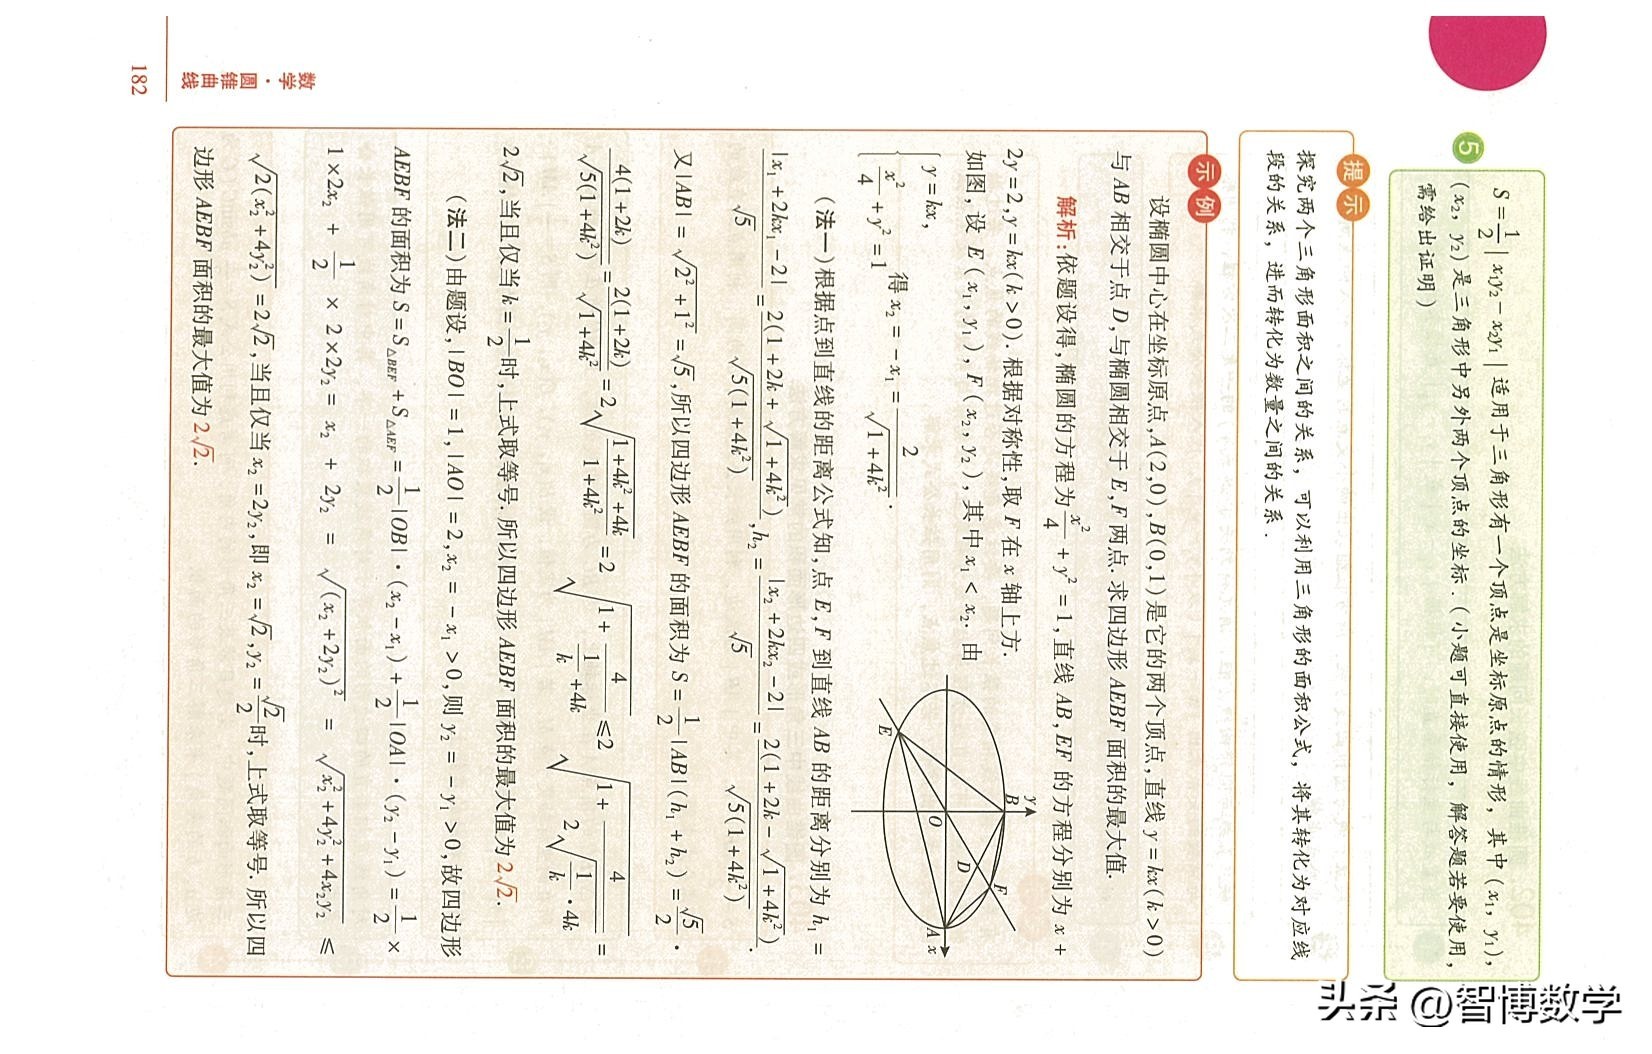 5 S=1/2|x₁y₂-x₂y₁|适用于三角形有一个顶点是坐标原点的情形，其中(x₁，y₁)，
(x₂，y₂)是三角形中另外两个顶点的坐标.(小题可直接使用，解答题若要使用，
需给出证明)
提示
探究两个三角形面积之间的关系，可以利用三角形的面积公式，将其转化为对应线
段的关系，进而转化为数量之间的关系.
示例
设椭圆中心在坐标原点,A(2,0),B(0,1)是它的两个顶点,直线y=kx(k>0)
与AB相交于点D,与椭圆相交于E,F两点.求四边形AEBF面积的最大值.
解析:依题设得,椭圆的方程为x²/4+y²=1,直线AB,EF的方程分别为x+
2y=2,y=kx(k>0).根据对称性,取F在x轴上方.
如图,设E(x₁,y₁),F(x₂,y₂),其中x₁<x₂.由
{y=kx, x²/4+y²=1 得x₂=-x₁=2/√(1+4k²).
y B F D O A x E
(法一)根据点到直线的距离公式知,点E,F到直线AB的距离分别为h₁=
|x₁+2kx₁-2|/√5=2(1+2k+√(1+4k²))/√(5(1+4k²)),h₂=|x₂+2kx₂-2|/√5=2(1+2k-√(1+4k²))/√(5(1+4k²)).
又|AB|=√(2²+1²)=√5,所以四边形AEBF的面积为S=1/2|AB|(h₁+h₂)=√5/2·
4(1+2k)/√(5(1+4k²))=2(1+2k)/√(1+4k²)=2√((1+4k²+4k)/(1+4k²))=2√(1+4/(1/k+4k))≤2√(1+4/(2√(1/k·4k)))=
2√2,当且仅当k=1/2时,上式取等号.所以四边形AEBF面积的最大值为2√2.
(法二)由题设,|BO|=1,|AO|=2,x₂=-x₁>0,则y₂=-y₁>0,故四边形
AEBF的面积为S=S△BEF+S△AEF=1/2|OB|·(x₂-x₁)+1/2|OA|·(y₂-y₁)=1/2×
1×2x₂+1/2×2×2y₂=x₂+2y₂=√((x₂+2y₂)²)=√(x₂²+4y₂²+4x₂y₂)≤
√(2(x₂²+4y₂²))=2√2,当且仅当x₂=2y₂,即x₂=√2,y₂=√2/2时,上式取等号.所以四
边形AEBF面积的最大值为2√2.
数学·圆锥曲线
182
头条 @智博数学